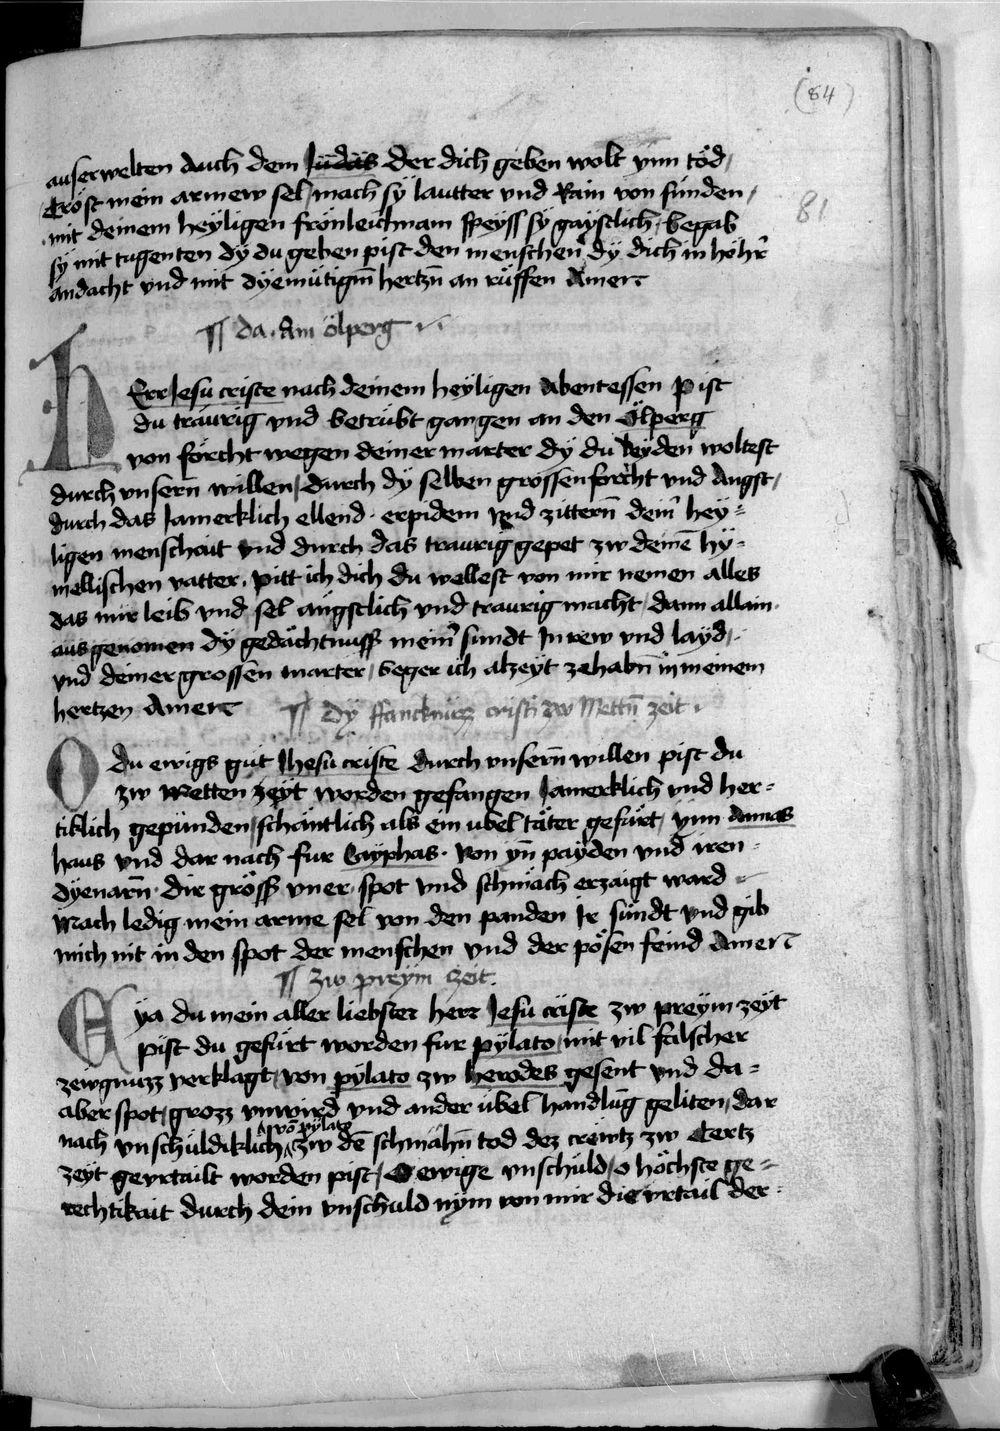 (84)
auserwelten Auch dem Judas der dich geben wolt ynn töd /
Tröst mein armew sel / mach sy lautter vnd Rain von sünden /
81
mit deinem heyligen frönleichnam speyss sy gaystlich / begab
sy mit tugenten dy du geben pist den menschen dy dich in hoher
andacht vnd mit dyemütigm̄ hertzn̄ an rüffen Amen
¶ da. Am ölperg
HErr Jesu criste nach deinem heyligen Abentessen pist
du traurig vnd betrübt gangen an den Ölperg
von forcht wegen deiner marter dy du leyden woltest
durch vnsern willen / durch dy selben grossen forcht vnd Angst /
durch das Jamerklich ellend . erpidem vnd zittern̄ dein̄ hey=
ligen menschait vnd durch das traurig gepet zw deinē hy=
mellischen vatter . pitt ich dich du wellest von mir nemen alles
das mir leib vnd sel angstlich vnd traurig macht / dann allain
ausgenomen dy gedächtnuss mein̄ sundt In rew vnd layd /
vnd deiner grossen marter / beger ich alzeyt zehabn̄ in meinem
hertzen Amen ¶ dy ffancknüzz cristi zw Mettn̄ zeit
O du ewigs güt Jhesu criste durch vnsern̄ willen pist du
zw Metten zeyt worden gefangen Jamerklich vnd her=
tiklich gepunden / schäntlich als ein ubel täter gefürt / ynn Annas
haus vnd dar nach fur Cayphas . von yn̄ payden vnd iren
dyenarn̄ dir gröss vner . spot vnd schmäch erzaigt ward
Mach ledig mein arme sel von den panden Ir sündt vnd gib
mich nit in den spot der menschen vnd der pösen feind Amen
¶ zw preym zeit.
Eya du mein aller liebster herr Jesu criste zw preym zeyt
pist du gefürt worden fur pylato / mit vil falscher
zewgnuzz verklagt / von pylato zw herodes gesent vnd da=
aber spot / grozz vnwird vnd ander übel handlūg geliten / dar
nach vnschuldiklich vō pylato zw dē schmähn̄ tod dez crewtz zw Tertz
zeyt gevrtailt worden pist / O ewige vnschuld / o höchste ge=
rechtikait durch dein vnschuld nym von mir die vrtail der=